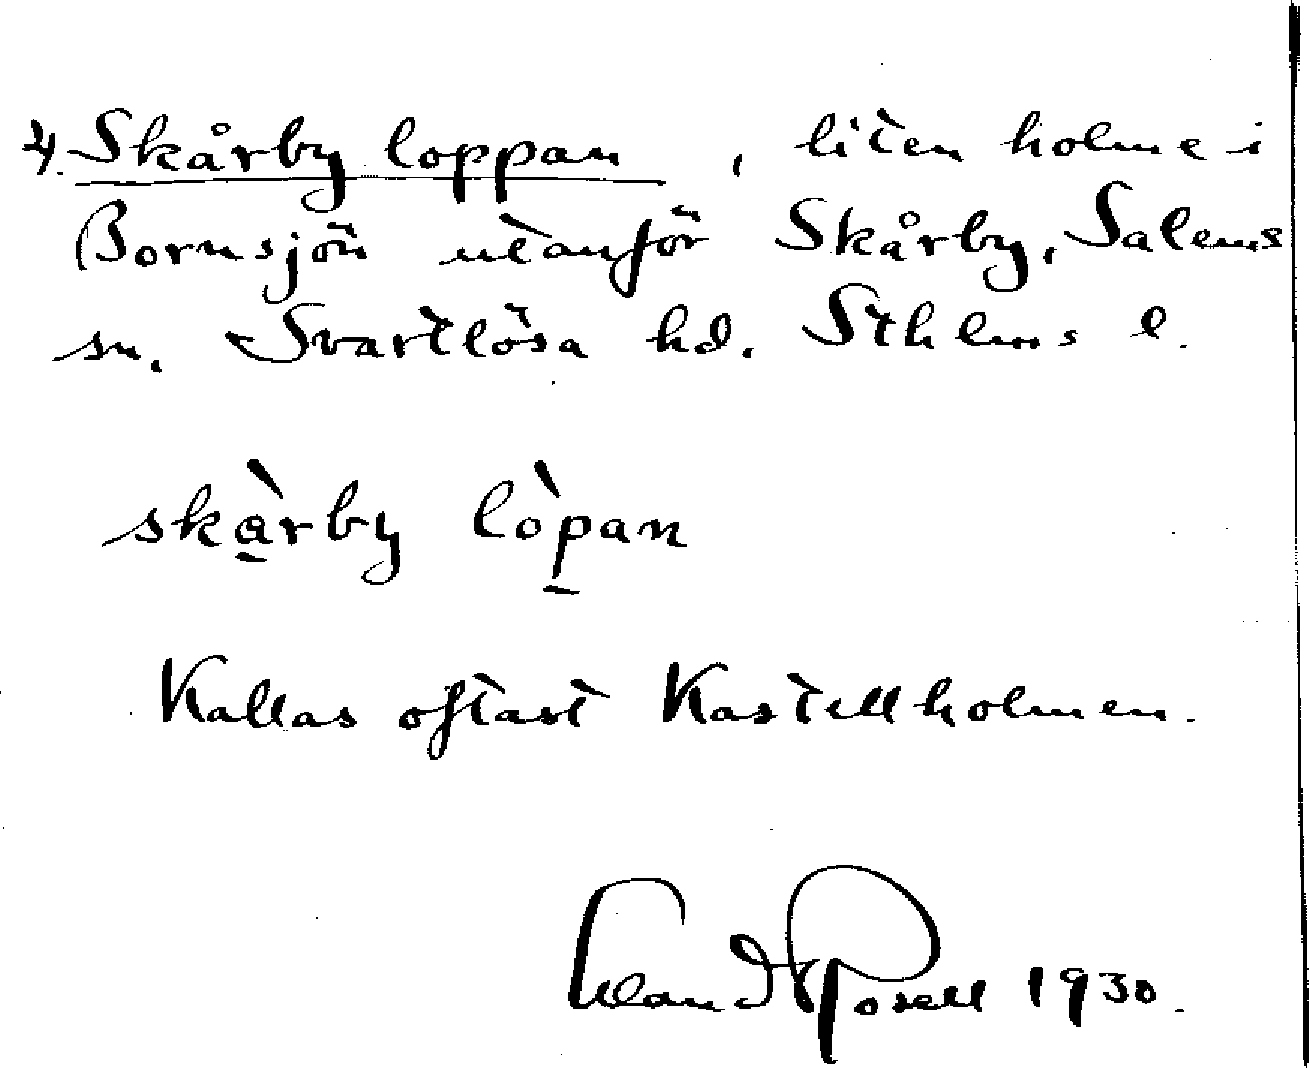 4. Skårby loppan, liten holme i
Bornsjön utanför Skårby, Salems
sn. Svartlösa hd. Sthlms l.
skàrby lòpan
Kallas oftast Kastellholmen.
Rosell 1930.